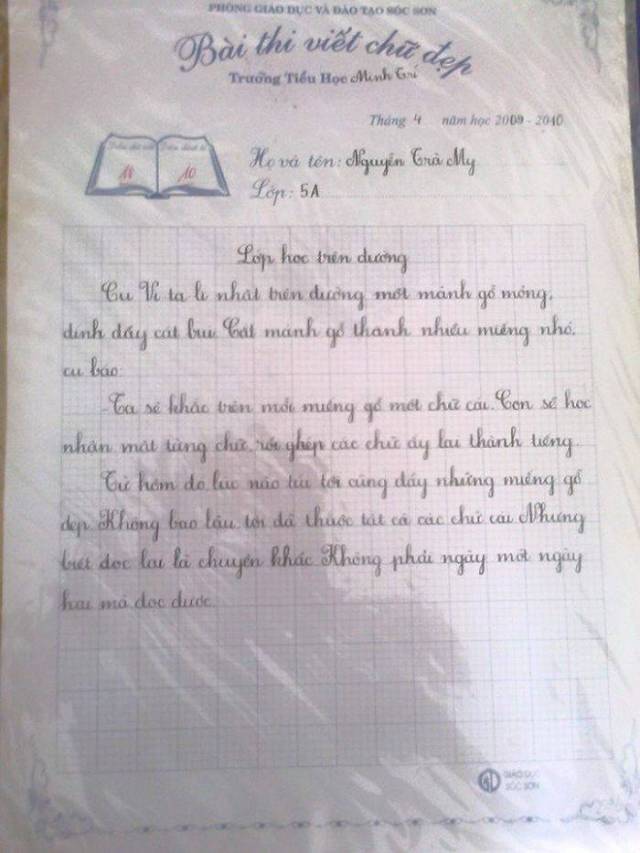 PHÒNG GIÁO DỤC VÀ ĐÀO TẠO SÓC SƠN
Bài thi viết chữ đẹp
Trường Tiểu Học Minh Trí
Tháng 4 năm học 2009 - 2010
10
Họ và tên: Nguyễn Trà My
Lớp: 5A
Lớp học trên đường
Cụ Vi-ta-li nhặt trên đường một mảnh gỗ mỏng,
dính đầy cát bụi. Cắt mảnh gỗ thành nhiều miếng nhỏ,
cụ bảo:
- Ta sẽ khắc trên mỗi miếng gỗ một chữ cái. Con sẽ học
nhận mặt từng chữ, rồi ghép các chữ ấy lại thành tiếng.
Từ hôm đó, lúc nào túi tôi cũng đầy những miếng gỗ
dẹp. Không bao lâu, tôi đã thuộc tất cả các chữ cái. Nhưng
biết đọc lại là chuyện khác. Không phải ngày một ngày
hai mà đọc được.
GIÁO DỤC
SÓC SƠN